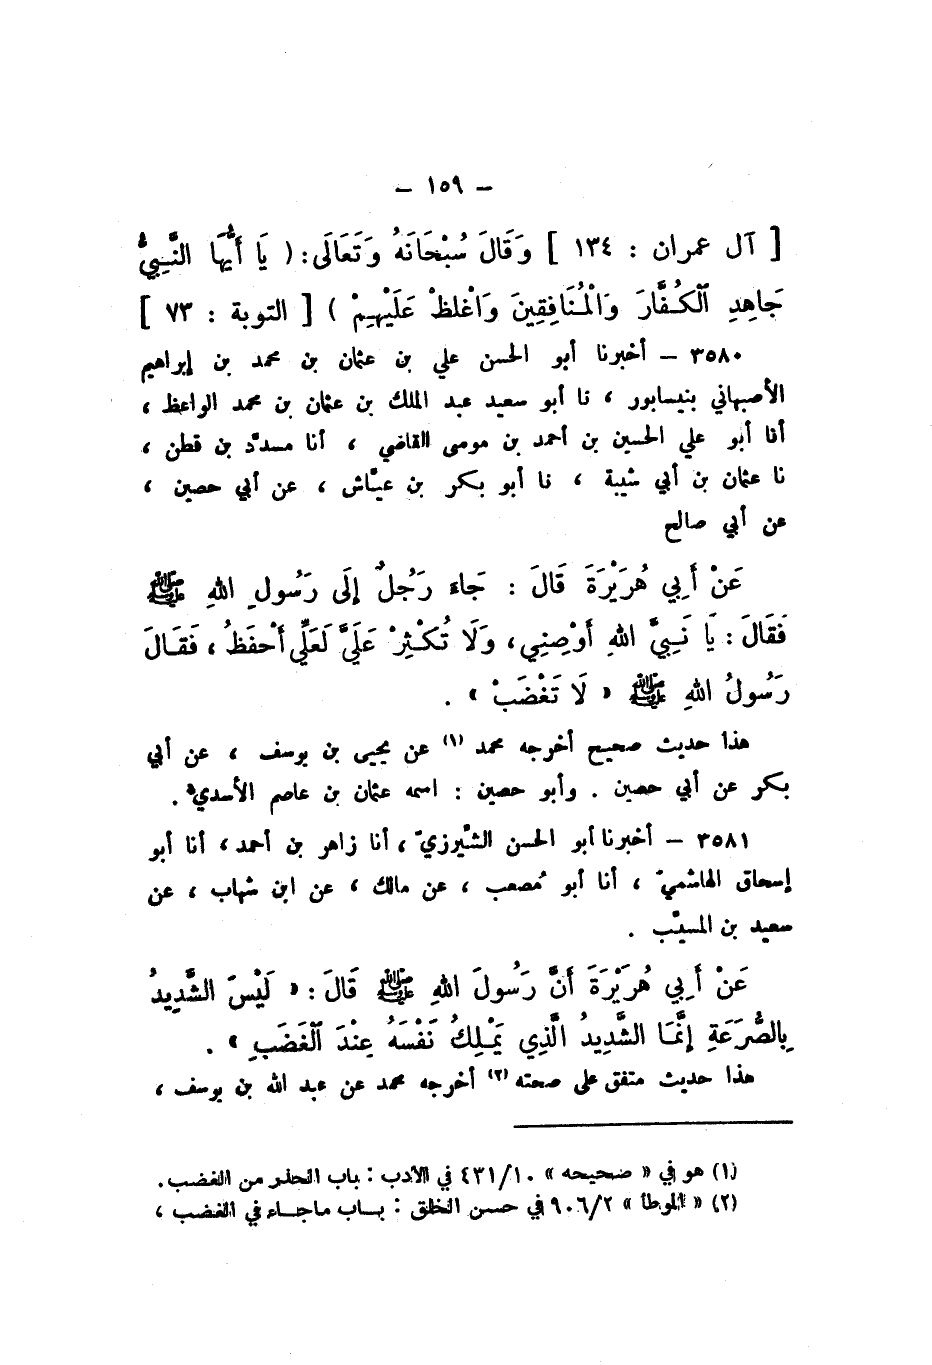 – ١٥٩ –
[ آل عمران : ١٣٤ ] وَقَالَ سُبْحَانَهُ وَتَعَالَى : ( يَا أَيُّهَا النَّبِيُّ
جَاهِدِ ٱلْكُفَّارَ وَالْمُنَافِقِينَ وَاغْلظْ عَلَيْهِمْ ) [ التوبة : ٧٣ ]
٣٥٨٠ – أخبرنا أبو الحسن علي بن عثمان بن محمد بن إبراهيم
الأصبهاني بنيسابور ، نا أبو سعيد عبد الملك بن عثمان بن محمد الواعظ ،
أنا أبو علي الحسين بن أحمد بن موسى القاضي ، أنا مسدّد بن قطن ،
نا عثمان بن أبي شيبة ، نا أبو بكر بن عيّاش ، عن أبي حصين ،
عن أبي صالح
عَنْ أَبِي هُرَيْرَةَ قَالَ : جَاءَ رَجُلٌ إِلَى رَسُولِ اللهِ ﷺ
فَقَالَ : يَا نَبِيَّ اللهِ أَوْصِنِي ، وَلَا تُكْثِرْ عَلَيَّ لَعَلِّي أَحْفَظُ ، فَقَالَ
رَسُولُ اللهِ ﷺ « لَا تَغْضَبْ » .
هذا حديث صحيح أخرجه محمد (١) عن يحيى بن يوسف ، عن أبي
بكر عن أبي حصين . وأبو حصين : اسمه عثمان بن عاصم الأسديّ .
٣٥٨١ – أخبرنا أبو الحسن الشّيرزيّ ، أنا زاهر بن أحمد ، أنا أبو
إسحاق الهاشميّ ، أنا أبو مُصعب ، عن مالك ، عن ابن شهاب ، عن
سعيد بن المسيّب .
عَنْ أَبِي هُرَيْرَةَ أَنَّ رَسُولَ اللهِ ﷺ قَالَ : « لَيْسَ الشَّدِيدُ
بِالصُّرَعَةِ إِنَّمَا الشَّدِيدُ الَّذِي يَمْلِكُ نَفْسَهُ عِنْدَ ٱلْغَضَبِ » .
هذا حديث متفق على صحته (٢) أخرجه محمد عن عبد الله بن يوسف ،
(١) هو في « صحيحه » ٤٣١/١٠ في الأدب : باب الحذر من الغضب .
(٢) « الموطأ » ٩٠٦/٢ في حسن الخلق : باب ما جاء في الغضب ،